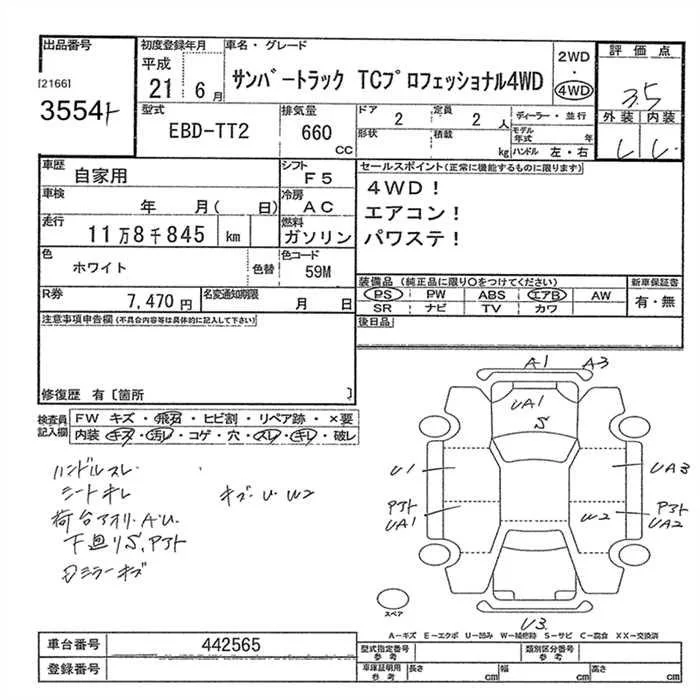 出品番号
[2166]
3554ト
初度登録年月
平成
21 6月
車名・グレード
サンバートラック TCプロフェッショナル4WD
2WD
・
4WD
評価点
3.5
外装 内装
型式
EBD-TT2
排気量
660
CC
ドア
2
定員
2 人
形状
積載
kg
ディーラー・並行
モデル年式 年
ハンドル 左・右
車歴
自家用
シフト
F5
車検
年 月( 日)
冷房
AC
走行
11万8千845 km
燃料
ガソリン
色
ホワイト
色替
色コード
59M
R券
7,470円
名変通知期限
月 日
セールスポイント(正常に機能するものに限ります)
4WD!
エアコン!
パワステ!
装備品 (純正品に限り○をつけてください)
PS PW ABS エアB AW
SR ナビ TV カワ
新車保証書
有・無
後日品
注意事項申告欄(不具合内容等は具体的に記入して下さい)
修復歴 有〔箇所 〕
検査員記入欄
FW キズ・飛石・ヒビ割・リペア跡・×要
内装・キズ・汚レ・コゲ・穴・スレ・キレ・破レ
ハンドルスレ
シートキレ
キズ・U・W2
荷台アオリ・A・U・
下廻りS,アト
ミラーキズ
A1 A3
UA1
S
U1
UA3
アト
UA1
W2
アト
UA2
U3
スペア
A-キズ E-エクボ U-凹み W-補修跡 S-サビ C-腐食 XX-交換済
車台番号
442565
登録番号
型式指定番号
参考
類別区分番号
参考
車庫証明用
参考
長さ cm
幅 cm
高さ cm